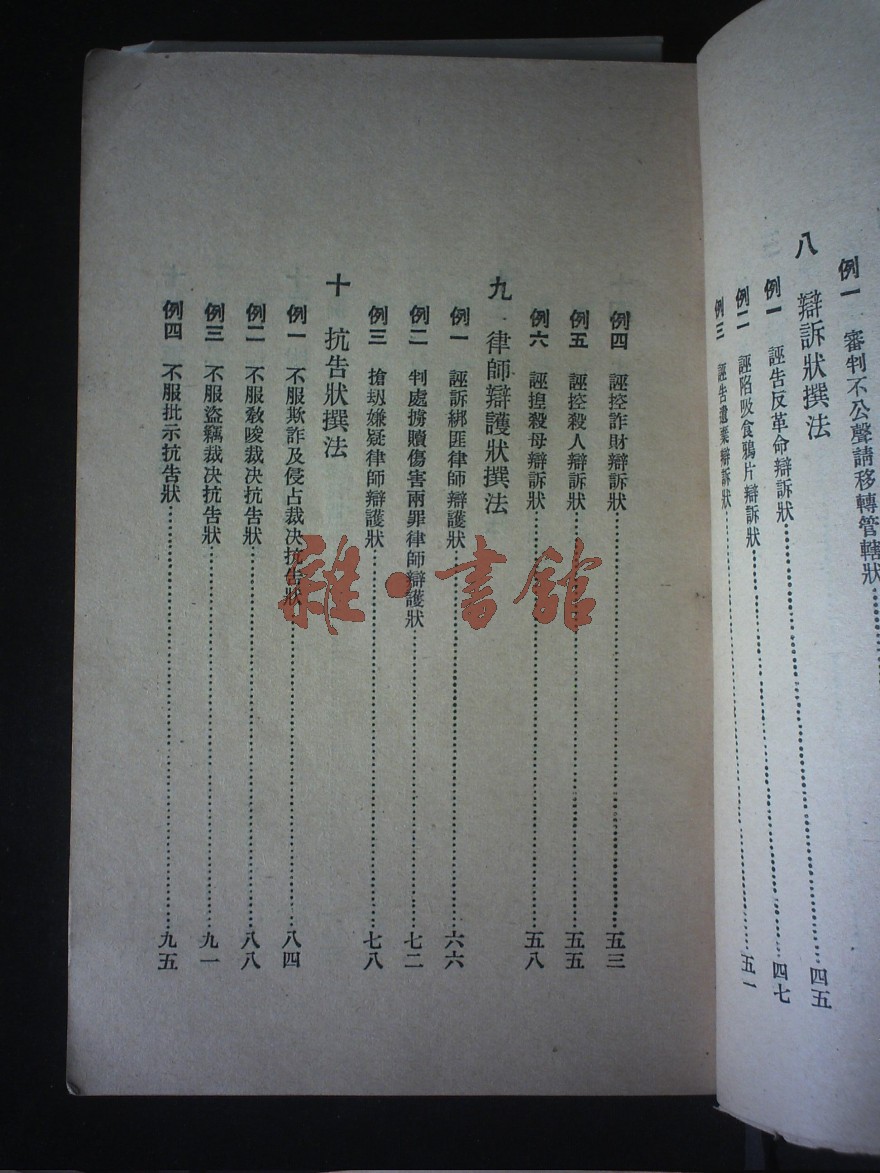 例一 審判不公聲請移轉管轄狀
八 辯訴狀撰法…四五
例一 誣告反革命辯訴狀…四七
例二 誣陷吸食鴉片辯訴狀…五一
例三 誣告遺棄辯訴狀
例四 誣控詐財辯訴狀…五三
例五 誣控殺人辯訴狀…五五
例六 誣揑殺母辯訴狀…五八
九 律師辯護狀撰法
例一 誣訴綁匪律師辯護狀…六六
例二 判處擄贖傷害兩罪律師辯護狀…七二
例三 搶刼嫌疑律師辯護狀…七八
十 抗告狀撰法
例一 不服欺詐及侵占裁决抗告狀…八四
例二 不服教唆裁决抗告狀…八八
例三 不服盜竊裁决抗告狀…九一
例四 不服批示抗告狀…九五
雜·書館